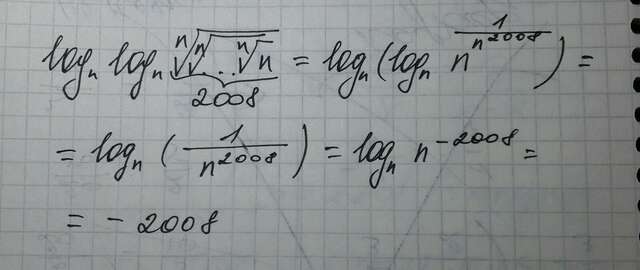 logₙ logₙ ⁿ√ⁿ√...ⁿ√n (2008) = logₙ(logₙ n^(1/n^2008)) =
= logₙ (1/n^2008) = logₙ n^-2008 =
= - 2008